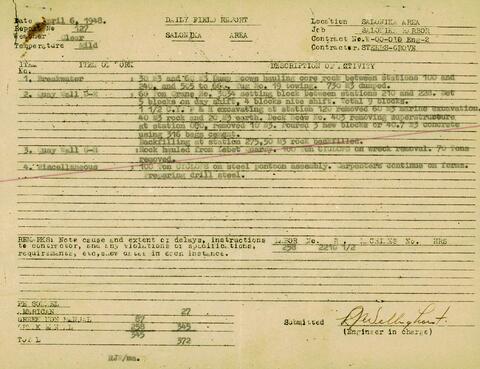 Date April 6, 1948. DAILY FIELD REPORT Location SALONIKA AREA
Report No 127 Job SALONIKA HARBOR
Weather Clear SALONIKA AREA Contract No. Eng-2
Temperature Mild Contractor STEERS-GROVE
ITEM No. ITEM OF WORK DESCRIPTION OF ACTIVITY
1. Breakwater : 30 M3 and 60 M3 Dump scows hauling core rock between stations 100 and
240, and 505 to 660. Tug No. 19 towing. 730 M3 dumped.
2. Quay Wall : 60 ton Crane No. 3034 setting block between stations 210 and 228. Set
5 blocks on day shift, 4 blocks nite shift. Total 9 blocks.
1 1/2 excavating at station 120 removed 60 M3 marine excavation
40 M3 rock and 20 M3 earth. Deck Scow No. 403 removing superstructure
at station 050, removed 10 M3. Poured 3 new blocks or 40.7 M3 concrete
using 316 bags cement.
Backfilling at station 275,50 M3 rock backfilled.
3. Quay Wall : Rock hauled from Lebet Quarry. 100 ton CYCLOPS on wreck removal. 70 Tons
removed.
4. Miscellaneous : 100 ton CYCLOPS on steel pontoon assembly. Carpenters continue on forms.
Preparing drill steel.
REMARKS: Note cause and extent of delays, instructions LABOR No. HRS
to contractor, and any violations of specifications, 258 2216 1/2
requirements, etc, show dates in each instance.
PERSONNEL
AMERICAN 27
GREEK NON MANUAL 87
GREEK MANUAL 258 345
345
TOTAL 372
Submitted
(Engineer in charge)